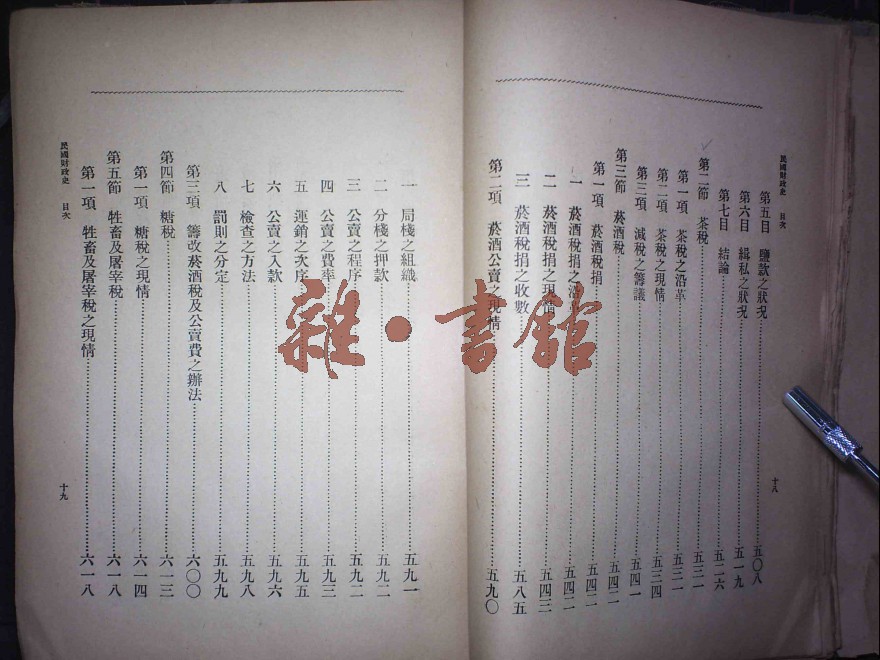 民國財政史 目次
第五目 鹽款之狀況 五〇八
第六目 緝私之狀況 五一九
第七目 結論 五二六
第二節 茶稅 五三一
第一項 茶稅之沿革 五三一
第二項 茶稅之現情 五三四
第三項 減稅之籌議 五四一
第三節 菸酒稅 五四二
第一項 菸酒稅捐 五四二
一 菸酒稅捐之沿 五四二
二 菸酒稅捐之現情 五四三
三 菸酒稅捐之收數 五八五
第二項 菸酒公賣之現情 五九〇
十八
民國財政史 目次
一 局棧之組織 五九一
二 分棧之押款 五九二
三 公賣之程序 五九二
四 公賣之費率 五九三
五 運銷之次序 五九五
六 公賣之入款 五九六
七 檢查之方法 五九八
八 罰則之分定 五九九
第三項 籌改菸酒稅及公賣費之辦法 六〇〇
第四節 糖稅 六一三
第一項 糖稅之現情 六一四
第五節 牲畜及屠宰稅 六一八
第一項 牲畜及屠宰稅之現情 六一八
十九
雜·書館